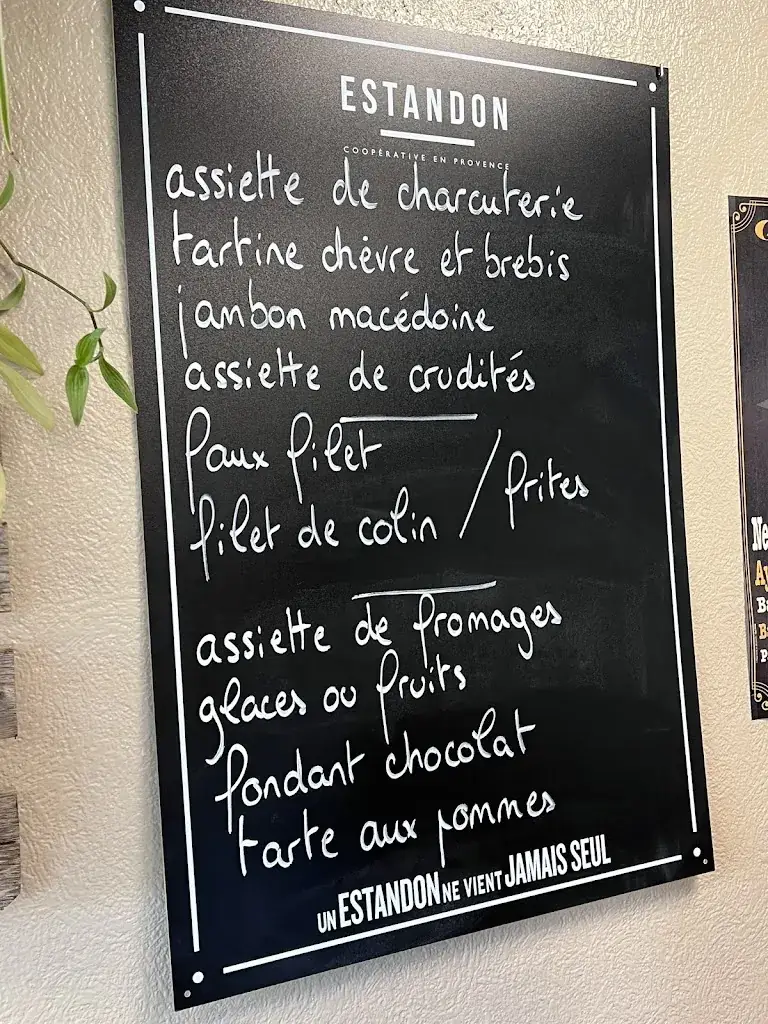 ESTANDON
COOPÉRATIVE EN PROVENCE
assiette de charcuterie
tartine chèvre et brebis
jambon macédoine
assiette de crudités
faux filet
filet de colin / frites
assiette de fromages
glaces ou fruits
fondant chocolat
tarte aux pommes
UN ESTANDON NE VIENT JAMAIS SEUL